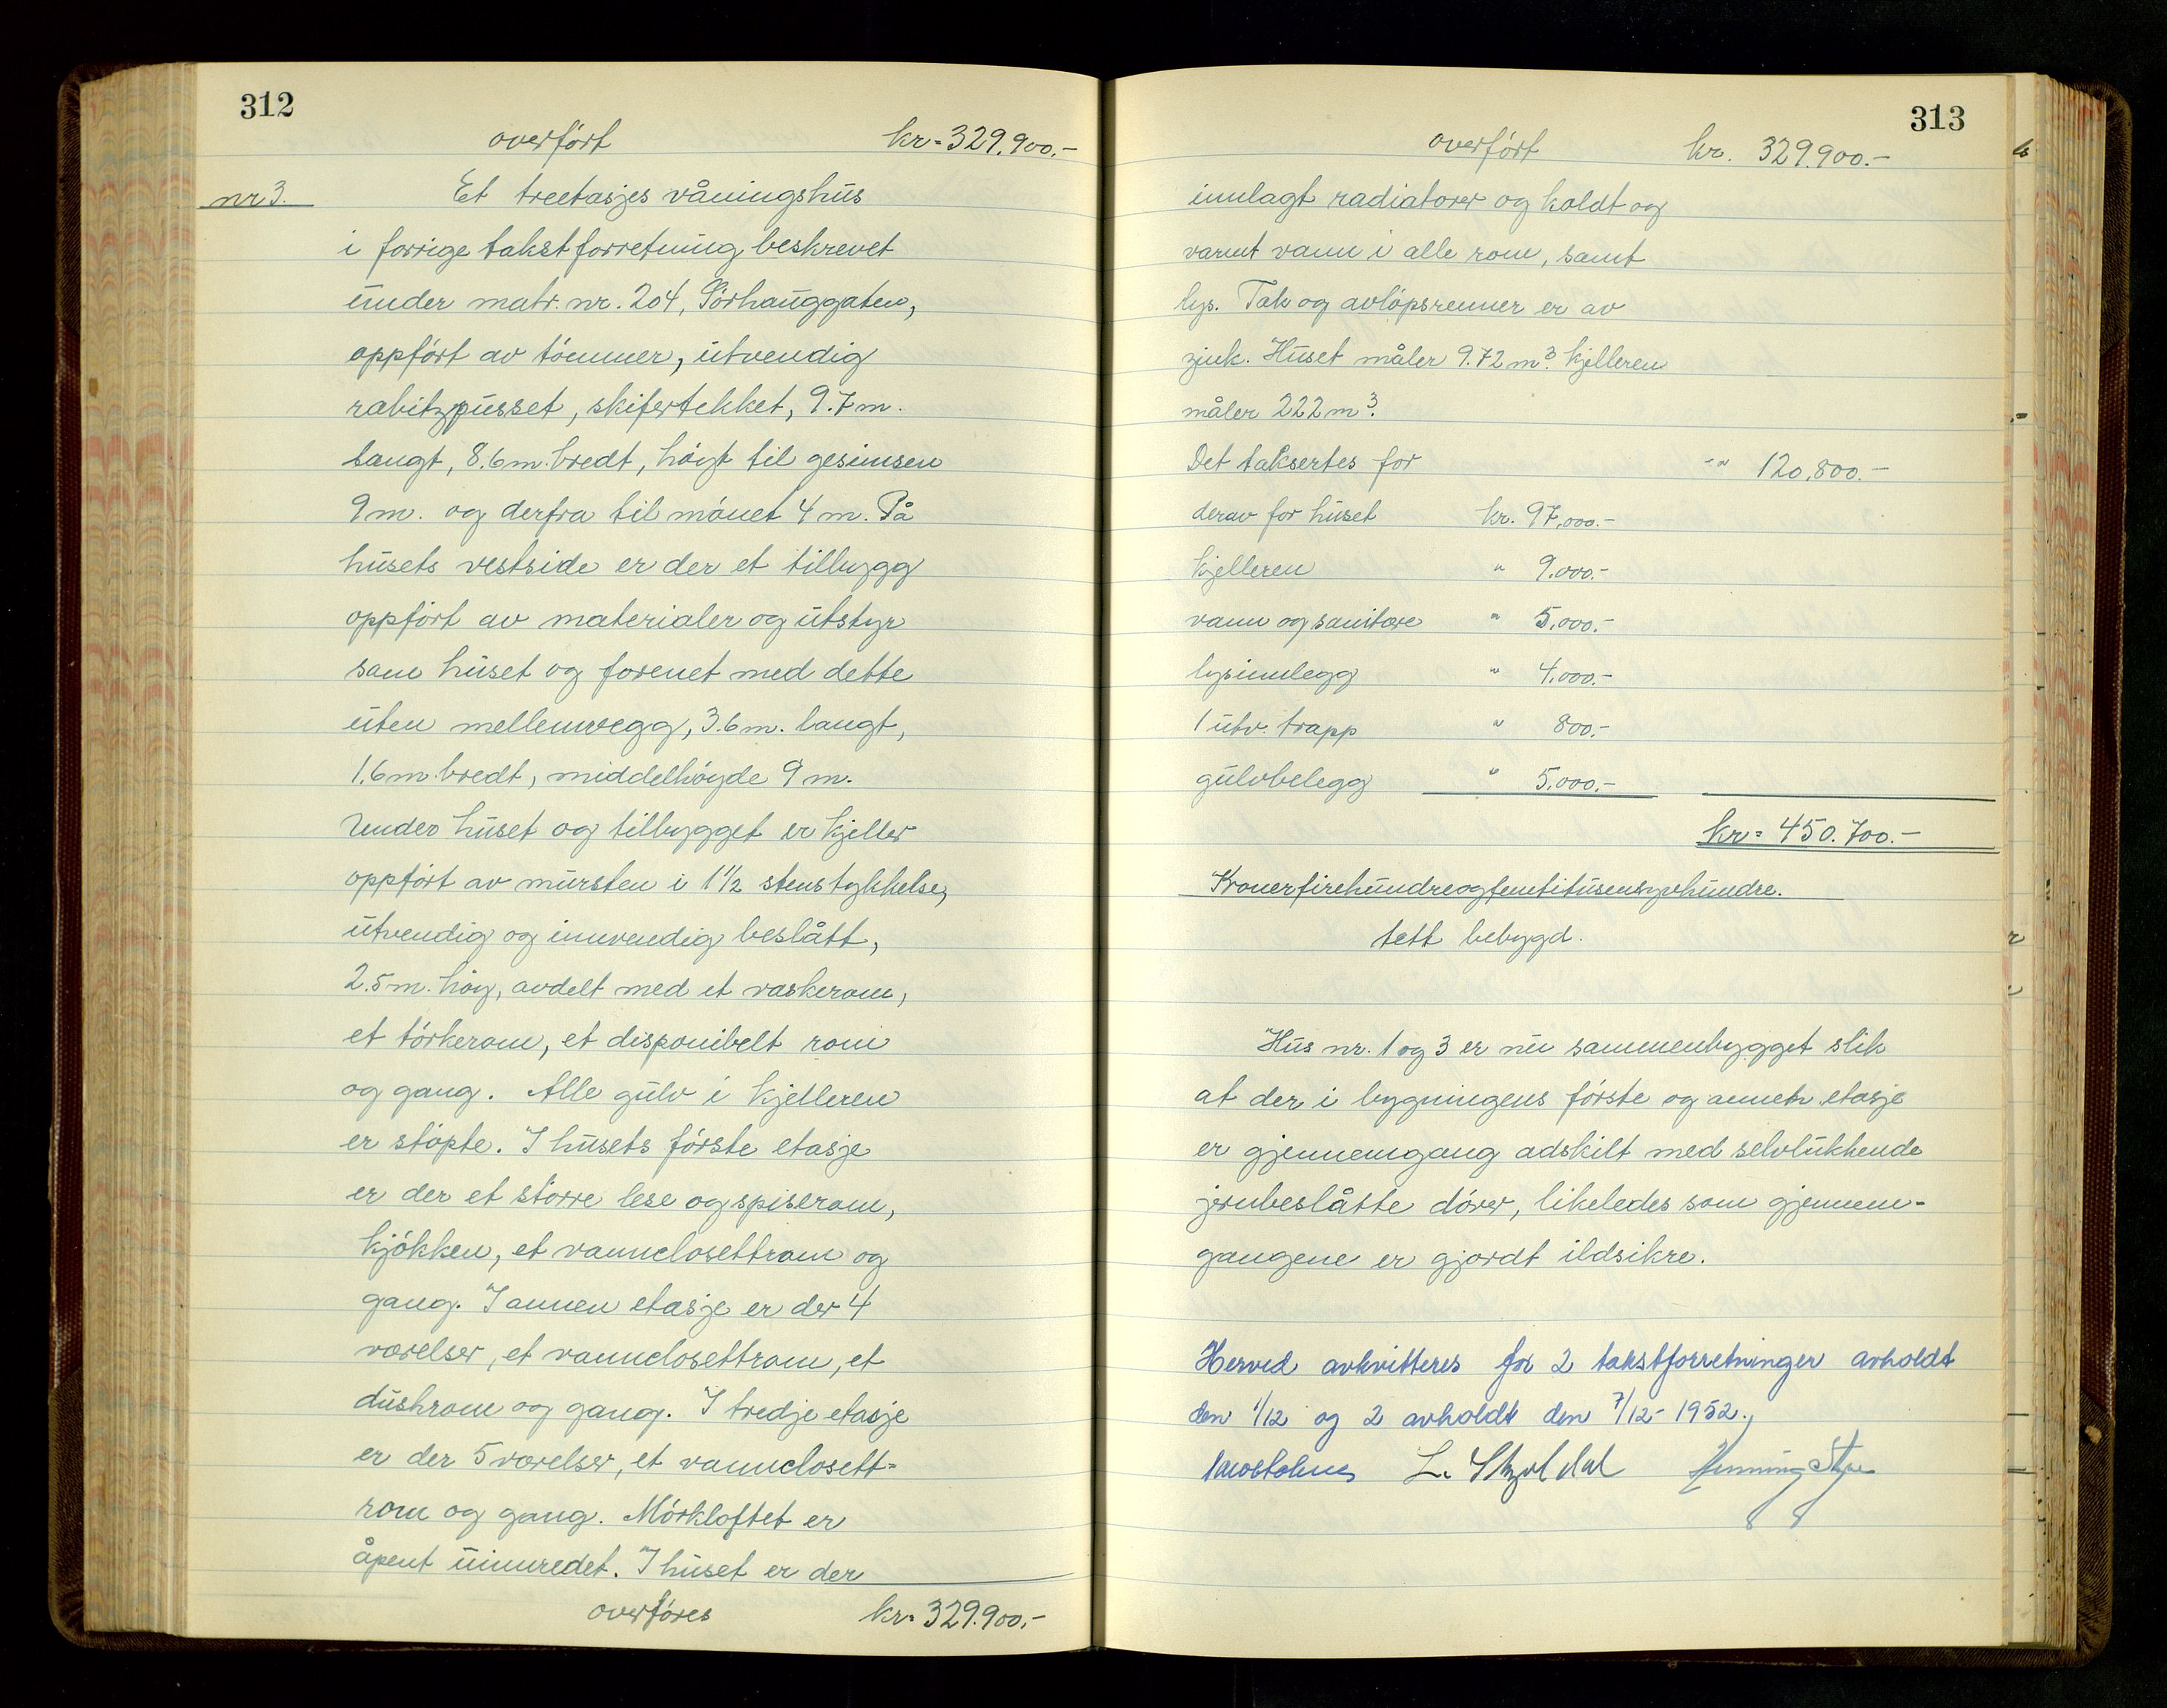 312
overført kr= 329.900.-
nr 3. Et treetasjes våningshus
i forrige takstforretning beskrevet
under matr. nr. 204, Sørhauggaten,
oppført av tømmer, utvendig
rabitzpusset, skifertekket, 9.7 m.
langt, 8.6 m. bredt, høyt til gesimsen
9 m. og derfra til mønet 4 m. På
husets vestside er der et tilbygg
oppført av materialer og utstyr
som huset og forenet med dette
uten mellemvegg, 3.6 m. langt,
1.6 m. bredt, middelhøyde 9 m.
Under huset og tilbygget er kjeller
oppført av mursten i 1 1/2 stens tykkelse,
utvendig og innvendig beslått,
2.5 m. høy, avdelt med et vaskerom,
et tørkerom, et disponibelt rom
og gang. Alle gulv i kjelleren
er støpte. I husets første etasje
er der et større lese og spiserom,
kjøkken, et vannclosettrom og
gang. I annen etasje er der 4
værelser, et vannclosettrom, et
dushrom og gang. I tredje etasje
er der 5 værelser, et vannclosett=
rom og gang. Mørkloftet er
åpent uinnredet. I huset er der
overføres kr= 329.900,-
313
overført kr. 329.900.-
innlagt radiatorer og koldt og
varmt vann i alle rom, samt
lys. Tak og avløpsrenner er av
zink. Huset måler 9.72 m3. kjelleren
måler 222 m3.
Det taksertes for -"- 120,800.-
derav for huset kr. 97,000.-
kjelleren " 9.000.-
vann og sanitære " 5.000.-
lysinnlegg " 4.000.-
1 utv. trapp " 800.-
gulvbelegg " 5.000.-
kr= 450.700.-
Kronerfirehundreogfemtitusensyvhundre.
tett bebygd.
Hus nr. 1 og 3 er nu sammenbygget slik
at der i bygningens første og annen etasje
er gjennemgang adskilt med selvlukkende
jernbeslåtte dører, likeledes som gjennem-
gangene er gjordt ildsikre.
Herved avkvitteres for 2 takstforretninger avholdt
den 1/12 og 2 avholdt den 7/12 - 1952.
L. Skjoldal Henning Stype